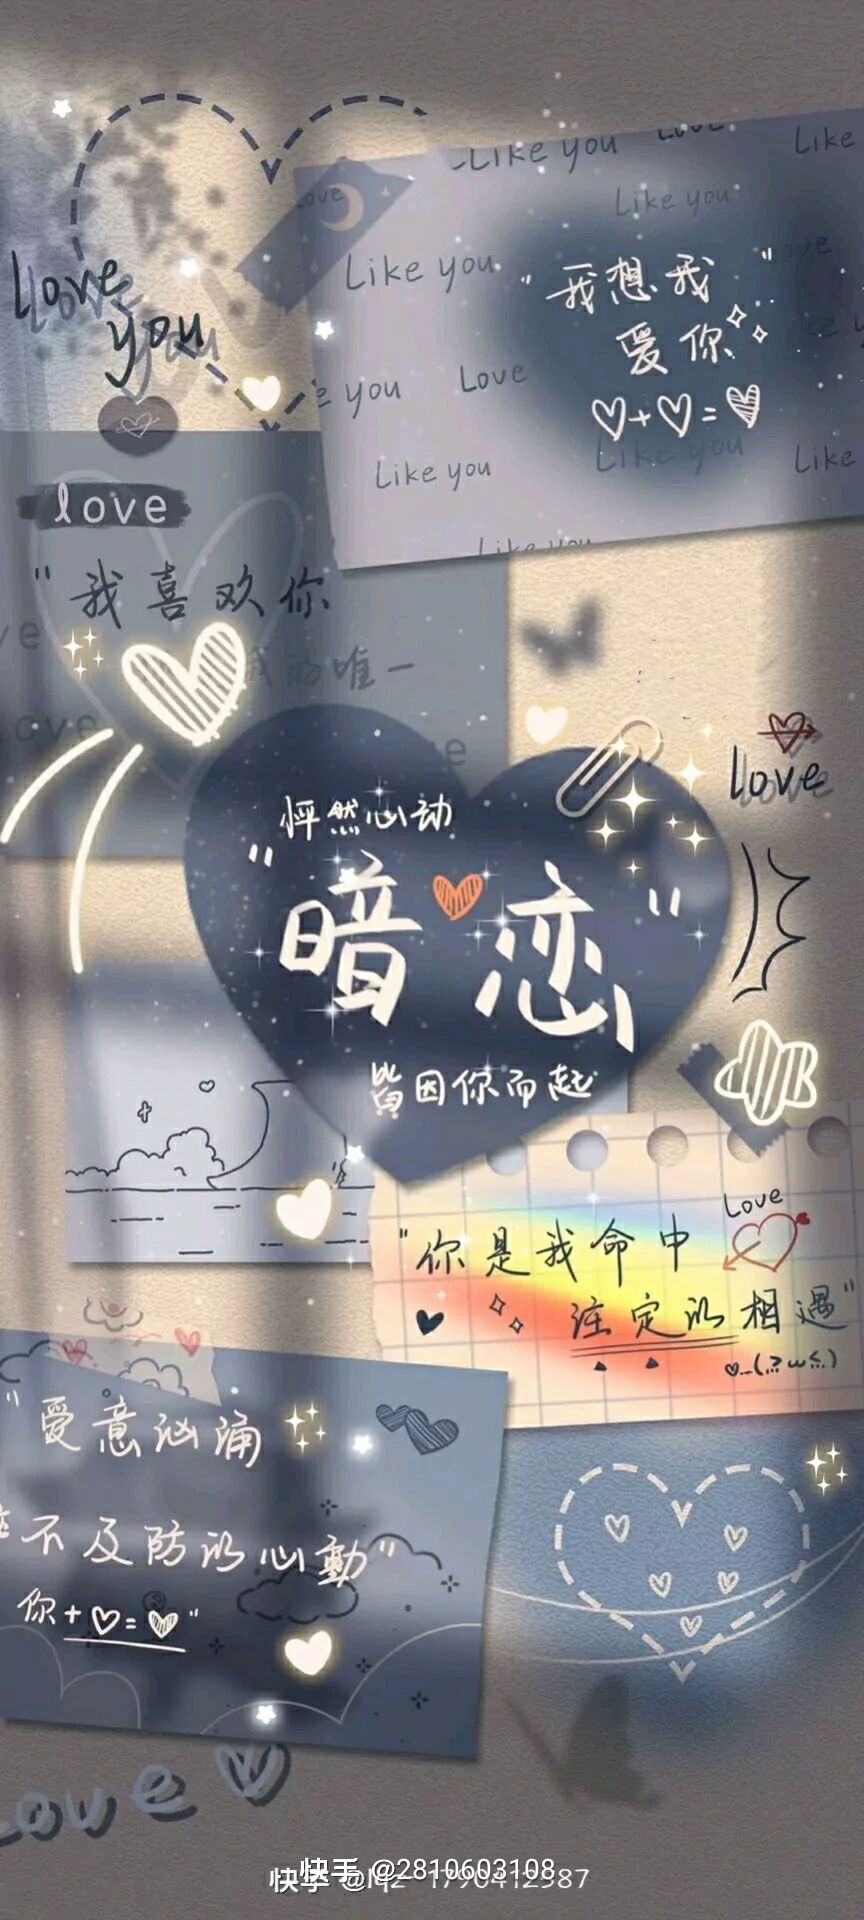 Love
Like you
Like
Love
Like you
Love
you
Like you
"我想我
爱你"
you
Love
Like you
Like you
Like
Like you
love
"我喜欢你
我的唯一
ove
怦然心动
"暗恋"
皆因你而起
love
Love
"你是我命中
注定的相遇"
"爱意汹涌
不及防的心動"
你+♡=♡"
Love
快手 @2810603108